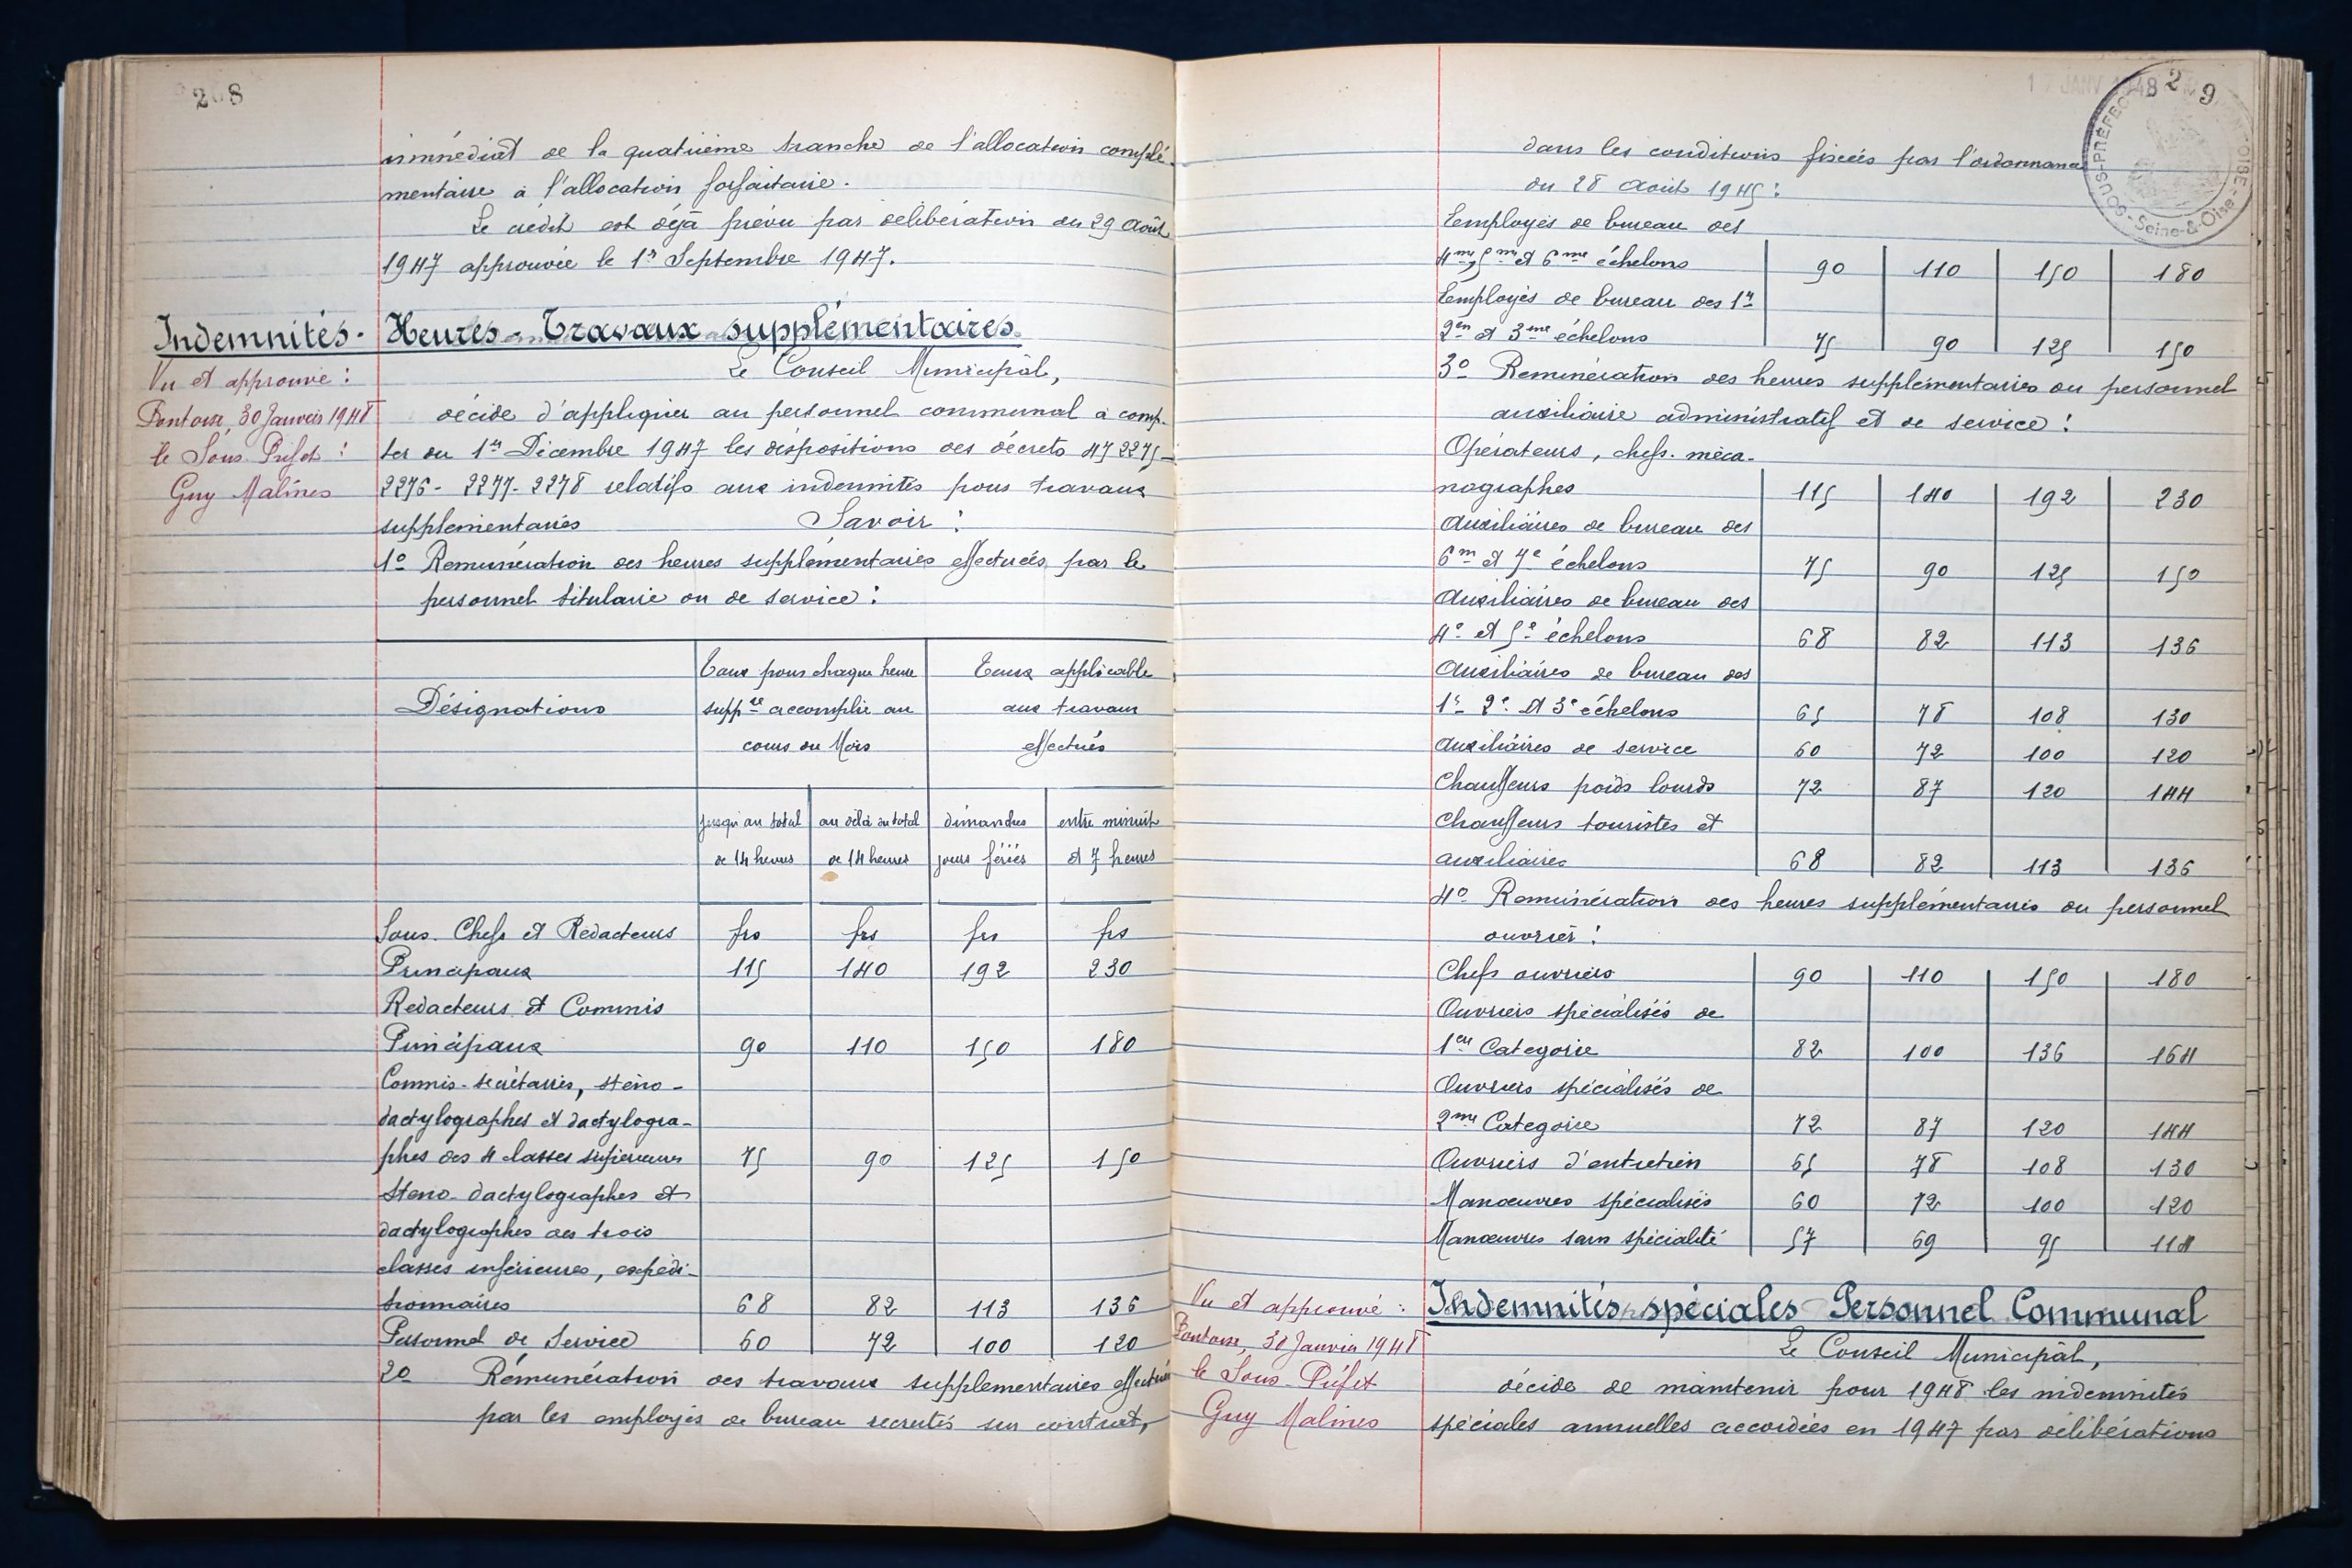 208
immédiat de la quatrième tranche de l'allocation complé-
mentaire à l'allocation forfaitaire.
Le crédit est déjà prévu par délibération du 29 Août
1947 approuvée le 1er Septembre 1947.
Indemnités - Heures - Travaux supplémentaires.
Vu et approuvé :
Pontoise, 30 Janvier 1948
le Sous-Préfet :
Guy Malines
Le Conseil Municipal,
décide d'appliquer au personnel communal à comp-
ter du 1er Décembre 1947 les dispositions des décrets 47 2275-
2276 - 2277 - 2278 relatifs aux indemnités pour travaux
supplémentaires Savoir :
1º Rémunération des heures supplémentaires effectuées par le
personnel titulaire ou de service :
Désignations
Taux pour chaque heure
suppre accomplie au
cours du Mois
Taux applicable
aux travaux
effectués
jusqu'au total
de 14 heures
au delà du total
de 14 heures
dimanches
jours fériés
entre minuit
et 7 heures
Sous-Chefs et Rédacteurs frs frs frs frs
Principaux 115 140 192 230
Rédacteurs et Commis
Principaux 90 110 150 180
Commis-secrétaires, sténo-
dactylographes et dactylogra-
phes des 4 classes supérieures 75 90 125 150
Sténo-dactylographes et
dactylographes des trois
classes inférieures, expédi-
tionnaires 68 82 113 136
Personnel de Service 60 72 100 120
2º Rémunération des travaux supplémentaires effectués
par les employés de bureau recrutés sur contrat,
17 JANV 1948
29
SOUS-PRÉFECTURE
OISE
Seine-&-Oise
dans les conditions fixées par l'ordonnance
du 28 Août 1945 :
Employés de bureau des
4me, 5me et 6me échelons 90 110 150 180
Employés de bureau des 1er
2en et 3me échelons 75 90 125 150
3º Rémunération des heures supplémentaires du personnel
auxiliaire administratif et de service :
Opérateurs, chefs-méca-
nographes 115 140 192 230
Auxiliaires de bureau des
6m et 7e échelons 75 90 125 150
Auxiliaires de bureau des
4e et 5e échelons 68 82 113 136
Auxiliaires de bureau des
1r 2e et 3e échelons 65 78 108 130
Auxiliaires de service 60 72 100 120
Chauffeurs poids lourds 72 87 120 144
Chauffeurs touristes et
auxiliaires 68 82 113 136
4º Rémunération des heures supplémentaires du personnel
ouvrier :
Chefs ouvriers 90 110 150 180
Ouvriers spécialisés de
1ere Catégorie 82 100 136 164
Ouvriers spécialisés de
2me Catégorie 72 87 120 144
Ouvriers d'entretien 65 78 108 130
Manœuvres spécialisés 60 72 100 120
Manœuvres sans spécialité 57 69 95 114
Vu et approuvé :
Pontoise, 30 Janvier 1948
le Sous-Préfet
Guy Malines
Indemnités spéciales Personnel Communal
Le Conseil Municipal,
décide de maintenir pour 1948 les indemnités
spéciales annuelles accordées en 1947 par délibérations